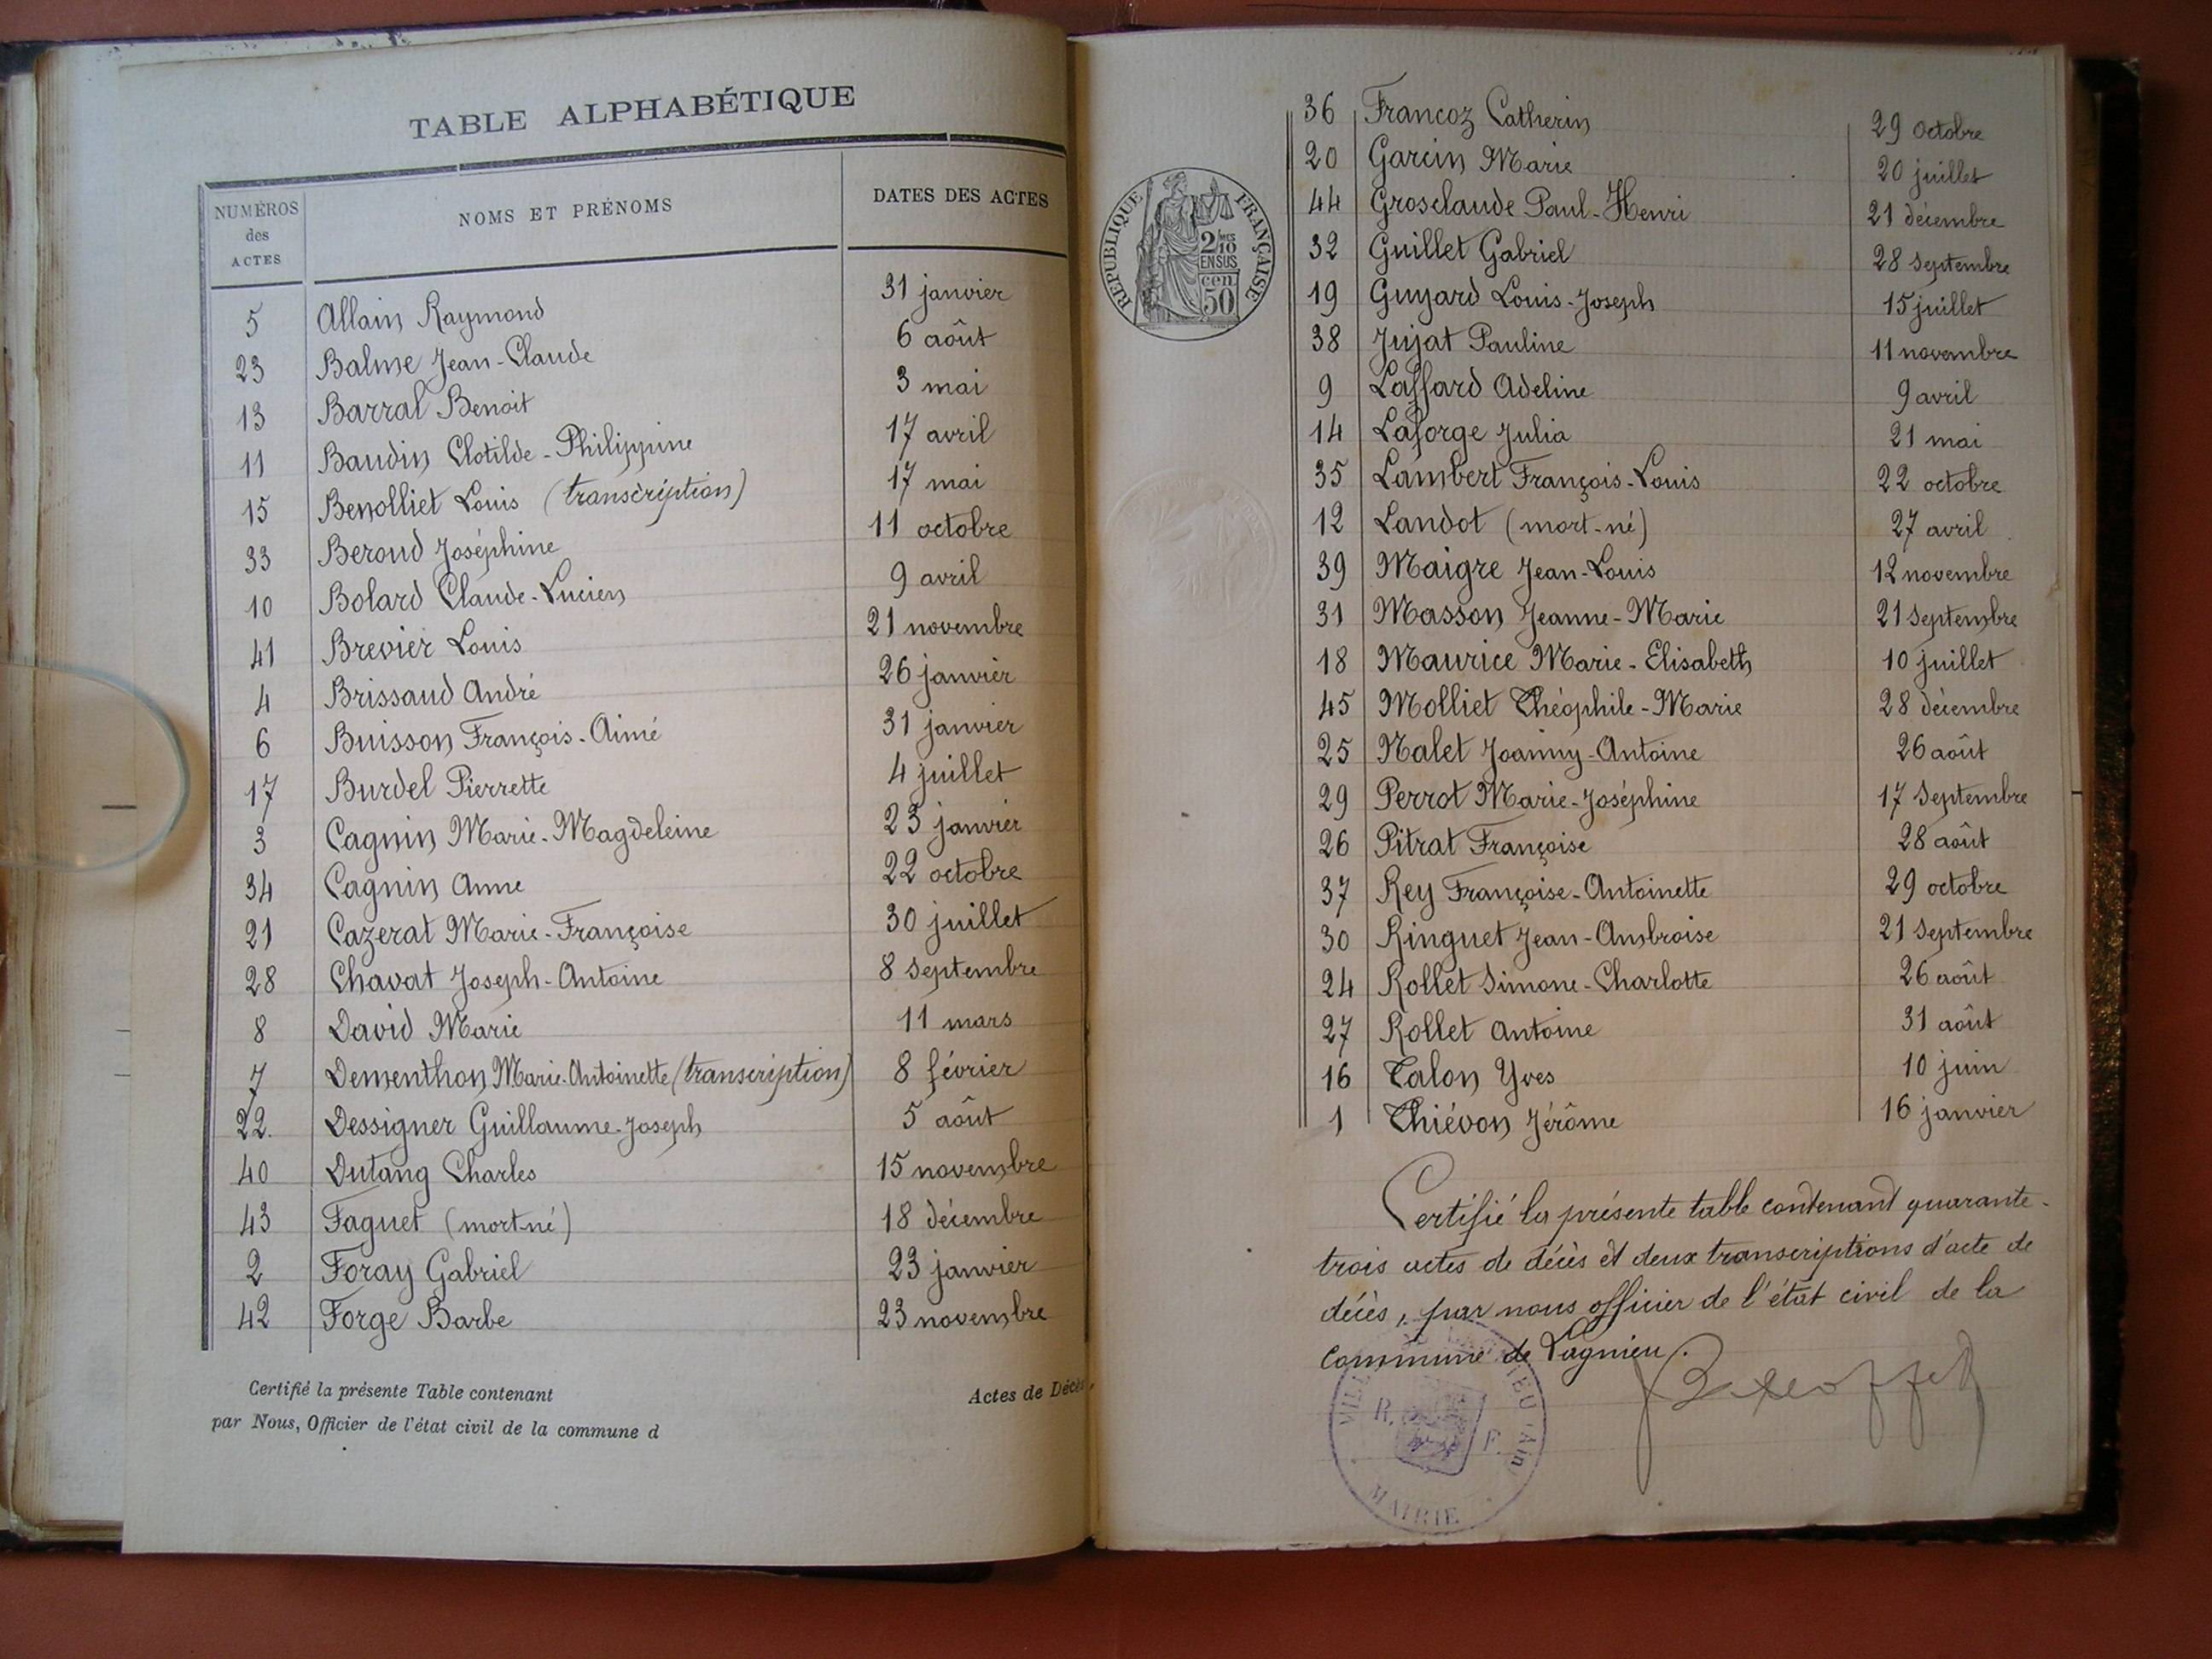 TABLE ALPHABÉTIQUE
NUMÉROS des ACTES NOMS ET PRÉNOMS DATES DES ACTES
5 Allain Raymond 31 janvier
23 Balme Jean-Claude 6 août
13 Barral Benoit 3 mai
11 Baudin Clotilde-Philippine 17 avril
15 Benolliet Louis (transcription) 17 mai
33 Beroud Joséphine 11 octobre
10 Bolard Claude-Lucien 9 avril
41 Brevier Louis 21 novembre
4 Brissaud André 26 janvier
6 Buisson François-Aimé 31 janvier
17 Burdel Pierrette 4 juillet
3 Cagnin Marie-Magdeleine 23 janvier
34 Cagnin Anne 22 octobre
21 Cazerat Marie-Françoise 30 juillet
28 Chavat Joseph-Antoine 8 septembre
8 David Marie 11 mars
7 Dementhon Marie-Antoinette (transcription) 8 février
22. Dessigner Guillaume-Joseph 5 août
40 Dutang Charles 15 novembre
43 Faguet (mort-né) 18 décembre
2 Foray Gabriel 23 janvier
42 Forge Barbe 23 novembre
Certifié la présente Table contenant Actes de Décès,
par Nous, Officier de l'état civil de la commune d
RÉPUBLIQUE FRANÇAISE
2/10 MES
EN SUS
50 cen
36 Francoz Catherin 29 octobre
20 Garcin Marie 20 juillet
44 Grosclaude Paul-Henri 21 décembre
32 Guillet Gabriel 28 septembre
19 Guyard Louis-Joseph 15 juillet
38 Jujat Pauline 11 novembre
9 Laffard Adeline 9 avril
14 Laforge Julia 21 mai
35 Lambert François-Louis 22 octobre
12 Landot (mort-né) 27 avril
39 Maigre Jean-Louis 12 novembre
31 Masson Jeanne-Marie 21 septembre
18 Maurice Marie-Elisabeth 10 juillet
45 Molliet Théophile-Marie 28 décembre
25 Nalet Joanny-Antoine 26 août
29 Perrot Marie-Joséphine 17 septembre
26 Pitrat Françoise 28 août
37 Rey Françoise-Antoinette 29 octobre
30 Ringuet Jean-Ambroise 21 septembre
24 Rollet Simone-Charlotte 26 août
27 Rollet Antoine 31 août
16 Talon Yves 10 juin
1 Thiévon Jérôme 16 janvier
Certifié la présente table contenant quarante-
trois actes de décès et deux transcriptions d'acte de
décès, par nous officier de l'état civil de la
commune de Lagnieu.
R. F.
MAIRIE